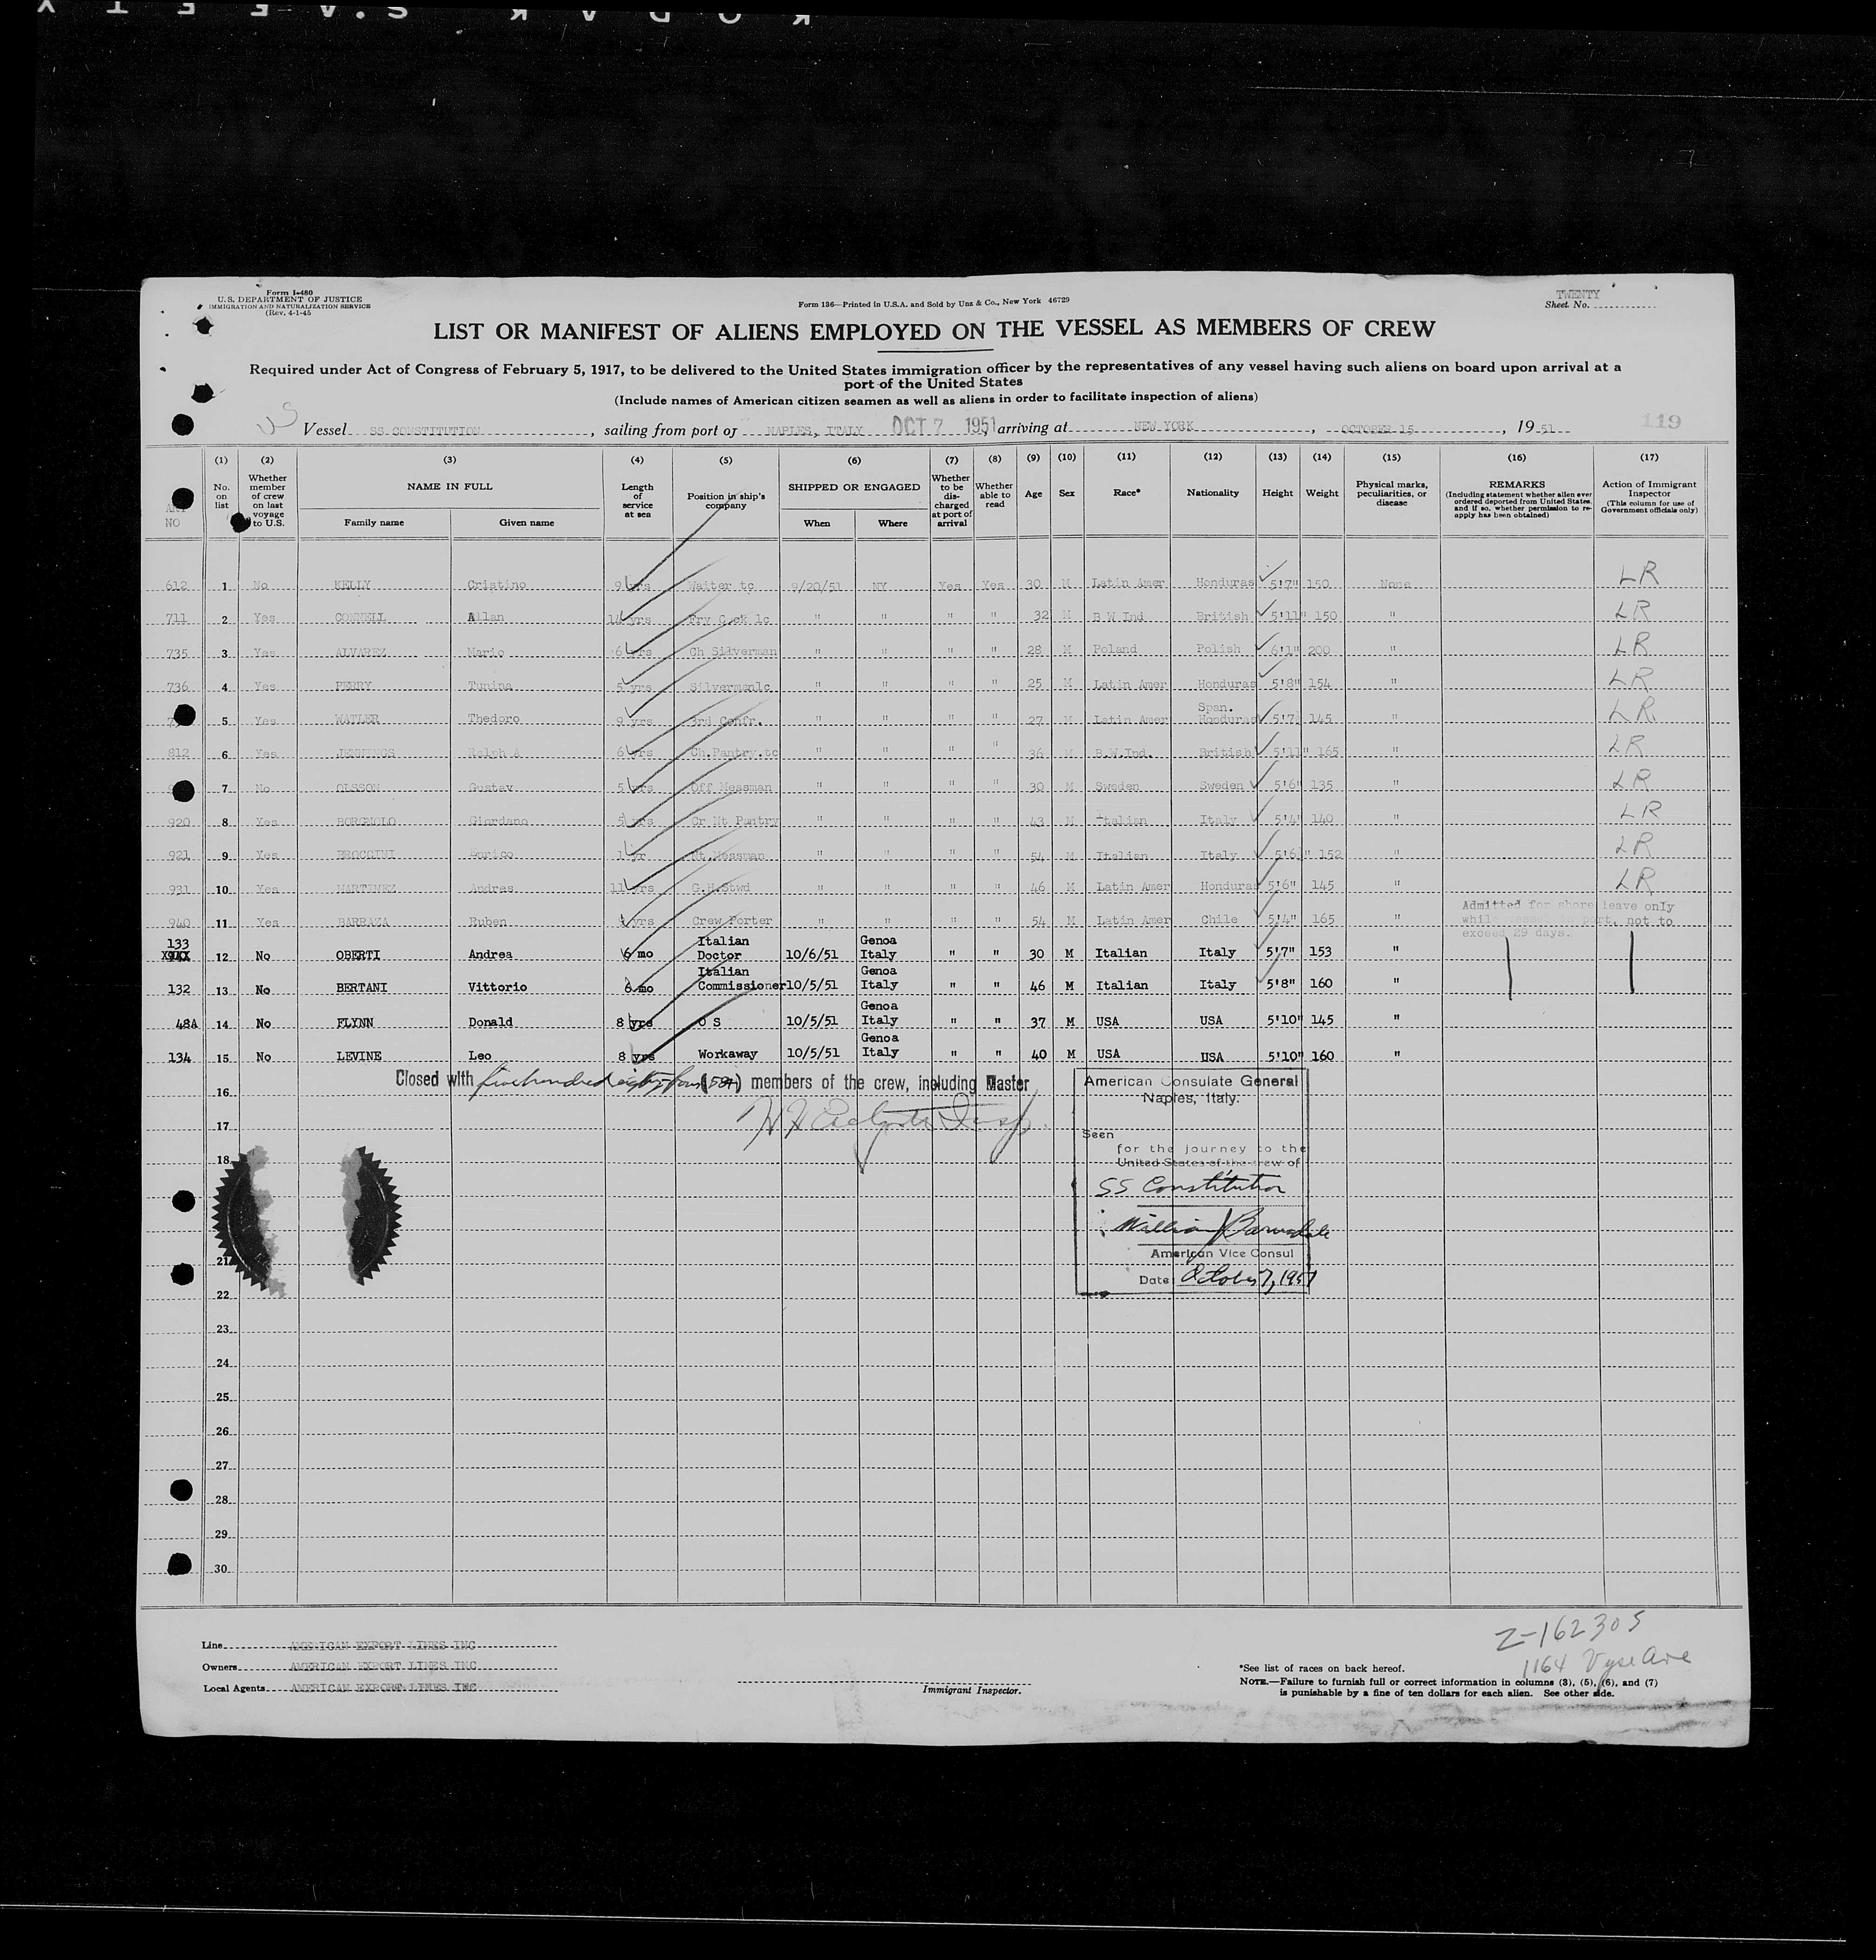 KODAK S.A.F.E.T.Y
Form I-480
U.S. DEPARTMENT OF JUSTICE
IMMIGRATION AND NATURALIZATION SERVICE
(Rev. 4-1-45
Form 136—Printed in U.S.A. and Sold by Unz & Co., New York 46729
TWENTY
Sheet No.
LIST OR MANIFEST OF ALIENS EMPLOYED ON THE VESSEL AS MEMBERS OF CREW
Required under Act of Congress of February 5, 1917, to be delivered to the United States immigration officer by the representatives of any vessel having such aliens on board upon arrival at a
port of the United States
(Include names of American citizen seamen as well as aliens in order to facilitate inspection of aliens)
US Vessel SS CONSTITUTION, sailing from port of NAPLES, ITALY OCT 7 1951, arriving at NEW YORK, OCTOBER 15, 19 51 119
(1) (2) (3) (4) (5) (6) (7) (8) (9) (10) (11) (12) (13) (14) (15) (16) (17)
ART NO
No. on list
Whether member of crew on last voyage to U.S.
NAME IN FULL
Family name Given name
Length of service at sea
Position in ship's company
SHIPPED OR ENGAGED
When Where
Whether to be discharged at port of arrival
Whether able to read
Age Sex Race* Nationality Height Weight
Physical marks, peculiarities, or disease
REMARKS
(Including statement whether alien ever ordered deported from United States, and if so, whether permission to re-apply has been obtained)
Action of Immigrant Inspector
(This column for use of Government officials only)
612 1 No KELLY Cristino 9 yrs Waiter tc 9/20/51 NY Yes Yes 30 M Latin Amer Honduras 5'7" 150 None LR
711 2 Yes CONNELL Allan 14 yrs Fry Cook lc " " " " 32 M B W Ind British 5'11" 150 " LR
735 3 Yes ALVAREZ Mario 6 yrs Ch Silverman " " " " 28 M Poland Polish 6'1" 200 " LR
736 4 Yes PERRY Tunina 5 yrs Silvermanlc " " " " 25 M Latin Amer Honduras 5'8" 154 " LR
5 Yes WATLER Thedoro 9 yrs 3rd Confr. " " " " 27 M Latin Amer Span. Honduras 5'7 145 " LR
812 6 Yes JENNINGS Ralph A 6 yrs Ch.Pantry.tc " " " " 36 M B.W.Ind. British 5'11" 165 " LR
7 No OLSSON Gustav 5 yrs Off Messman " " " " 30 M Sweden Sweden 5'6" 135 " LR
920 8 Yes BORGNOLO Giordano 5 yrs Cr Nt Pantry " " " " 43 M Italian Italy 5'4" 140 " LR
921 9 Yes BROCCINI Enrico 1 yr Nt.Messman " " " " 54 M Italian Italy 5'6" 152 " LR
931 10 Yes MARTINEZ Andres 11 yrs G.H.Stwd " " " " 46 M Latin Amer Honduras 5'6" 145 " LR
940 11 Yes BARRAZA Ruben yrs Crew Porter " " " " 54 M Latin Amer Chile 5'4" 165 " Admitted for shore leave only while vessel in port, not to exceed 29 days.
133 12 No OBERTI Andrea 6 mo Italian Doctor 10/6/51 Genoa Italy " " 30 M Italian Italy 5'7" 153 "
132 13 No BERTANI Vittorio 6 mo Italian Commissioner 10/5/51 Genoa Italy " " 46 M Italian Italy 5'8" 160 "
48A 14 No FLYNN Donald 8 yrs O S 10/5/51 Genoa Italy " " 37 M USA USA 5'10" 145 "
134 15 No LEVINE Leo 8 yrs Workaway 10/5/51 Genoa Italy " " 40 M USA USA 5'10" 160 "
Closed with five hundred eighty four (584) members of the crew, including Master
American Consulate General
Naples, Italy.
Seen
for the journey to the
United States of the crew of
SS Constitution
William Barnsdale
American Vice Consul
Date: October 7, 1951
16
17
18
21
22
23
24
25
26
27
28
29
30
Line AMERICAN EXPORT LINES INC
Owners AMERICAN EXPORT LINES INC
Local Agents AMERICAN EXPORT LINES INC
Immigrant Inspector.
Z-162305
1164 Vyse Ave
*See list of races on back hereof.
NOTE.—Failure to furnish full or correct information in columns (3), (5), (6), and (7)
is punishable by a fine of ten dollars for each alien. See other side.